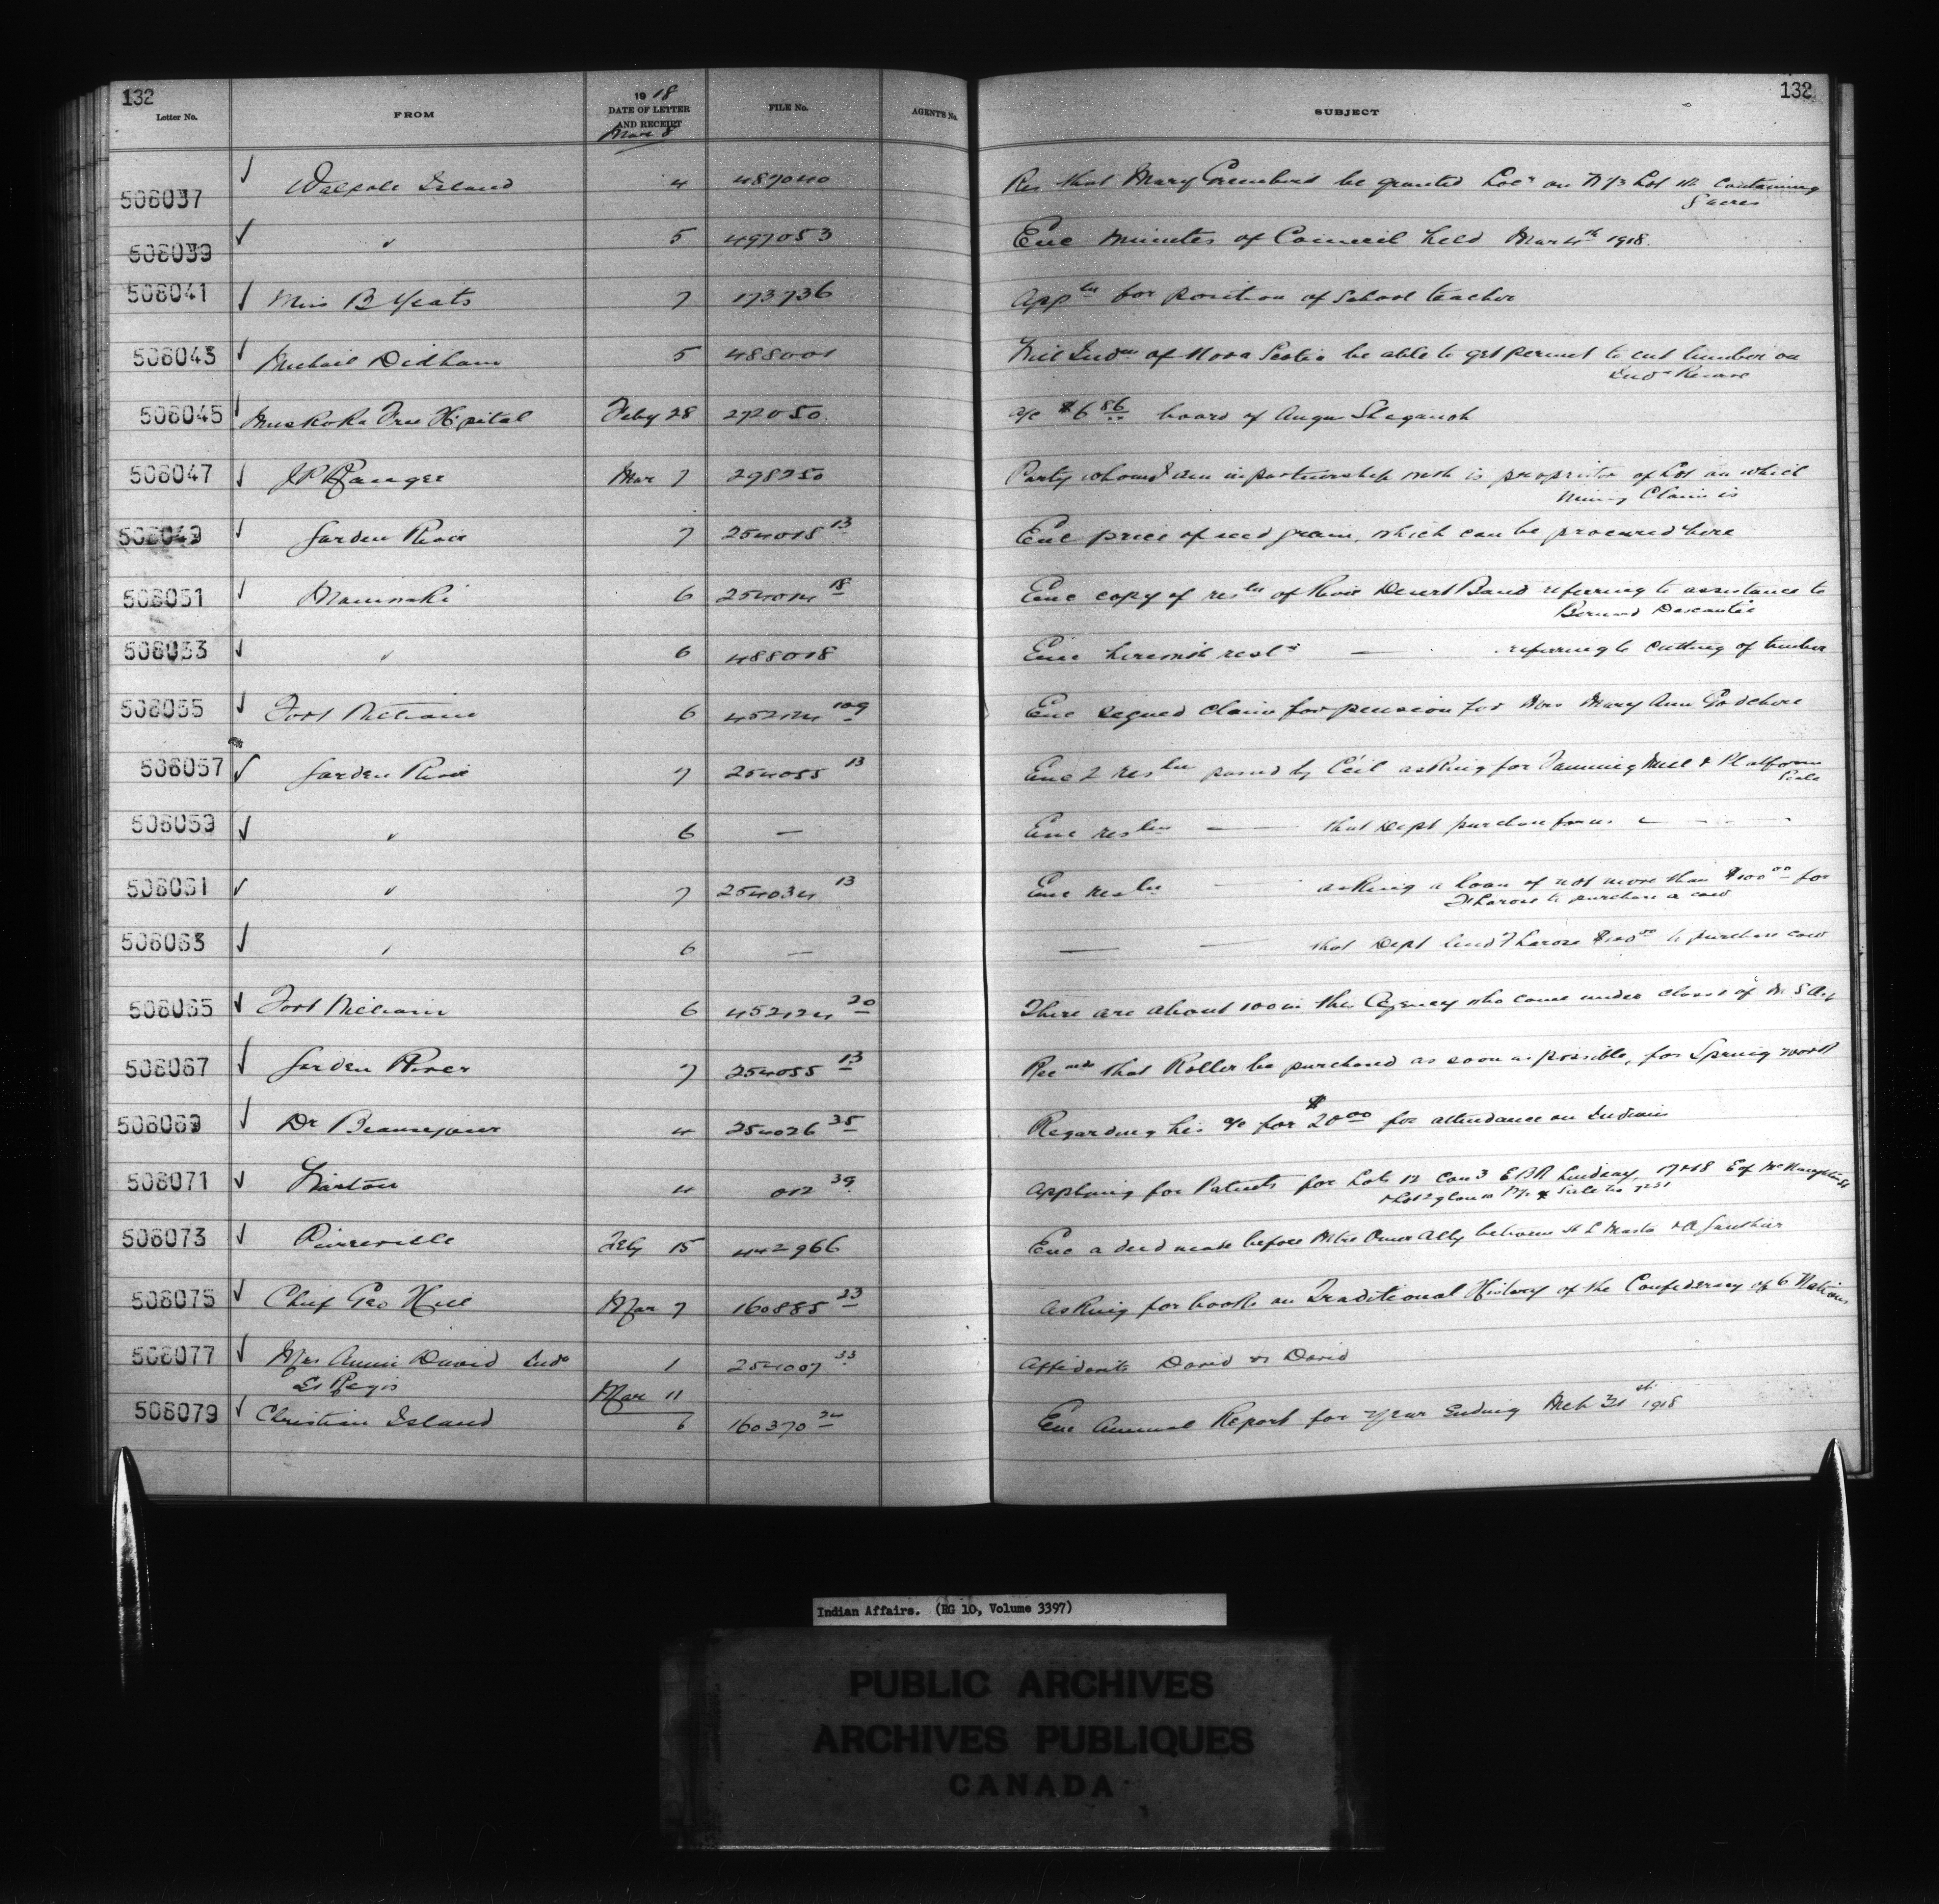 132
132
Letter No.
FROM
19 18
DATE OF LETTER
AND RECEIPT
Mar 8
FILE No.
AGENT'S No.
SUBJECT
508037 ✓ Walpole Island 4 487040 Res that Mary Greenbird be granted Loc on N 1/2 Lot containing
5 acres
508039 ✓ " 5 497053 Enc minutes of Council held Mar 4th 1918.
508041 ✓ Miss B Yeats 7 173736 Appln for position of School teacher
508043 ✓ Michail Didham 5 488001 Will Indns of Nova Scotia be able to get permit to cut timber on
Indn Reserve
508045 ✓ Muskoka Free Hspital Feby 28 272050 a/c $6 86 board of Angus
508047 ✓ J P Ranger Mar 7 298250 Party whom I am in partnership with is proprietor of Lot on which
Mining Claim is
508049 ✓ Garden River 7 254018 13 Enc price of seed grain, which can be procured here
508051 ✓ Maniwaki 6 254014 18 Enc copy of resln of River Desert Band referring to assistance to
Bernard
508053 ✓ " 6 488018 Enc herewith resln — referring to cutting of timber
508055 ✓ Fort William 6 452124 109 Enc signed claim for pension for Mrs Mary Ann
508057 ✓ Garden River 7 254055 13 Enc 2 resln passed by C'cil asking for Fanning Mill & Platform
Scale
508059 ✓ " 6 — Enc resln — that Dept purchase for us —
508061 ✓ " 7 254034 13 Enc resln — asking a loan of not more than $100 00 for
to purchase a cow
508063 ✓ " 6 — — — that Dept lend $100 00 to purchase cow
508065 ✓ Fort William 6 452124 20 There are about 100 in this Agency who come under class 1 of M. S. Act
508067 ✓ Garden River 7 254055 13 Recmds that Roller be purchased as soon as possible, for Spring work
508069 ✓ Dr Beausejour 4 254026 35 Regarding his a/c for $20 00 for attendance on Indians
508071 ✓ Wiarton 4 012 39 Applying for Patents for Lots 12 Con 3 E B R Lindsay, 17 & 18 E of
508073 ✓ Pierreville Feby 15 442966 Enc a deed made before between H L Masta & A Gauthier
508075 ✓ Chief Geo Hill Mar 7 160885 23 Asking for book on Traditional History of the Confederacy of 6 Nations
508077 ✓ Mrs Annie David Indn 1 254007 33 Affidavits David vs David
St Regis
Mar 11
508079 ✓ Christian Island 6 160370 Enc Annual Report for year Ending Mch 31st 1918
Indian Affairs. (RG 10, Volume 3397)
PUBLIC ARCHIVES
ARCHIVES PUBLIQUES
CANADA